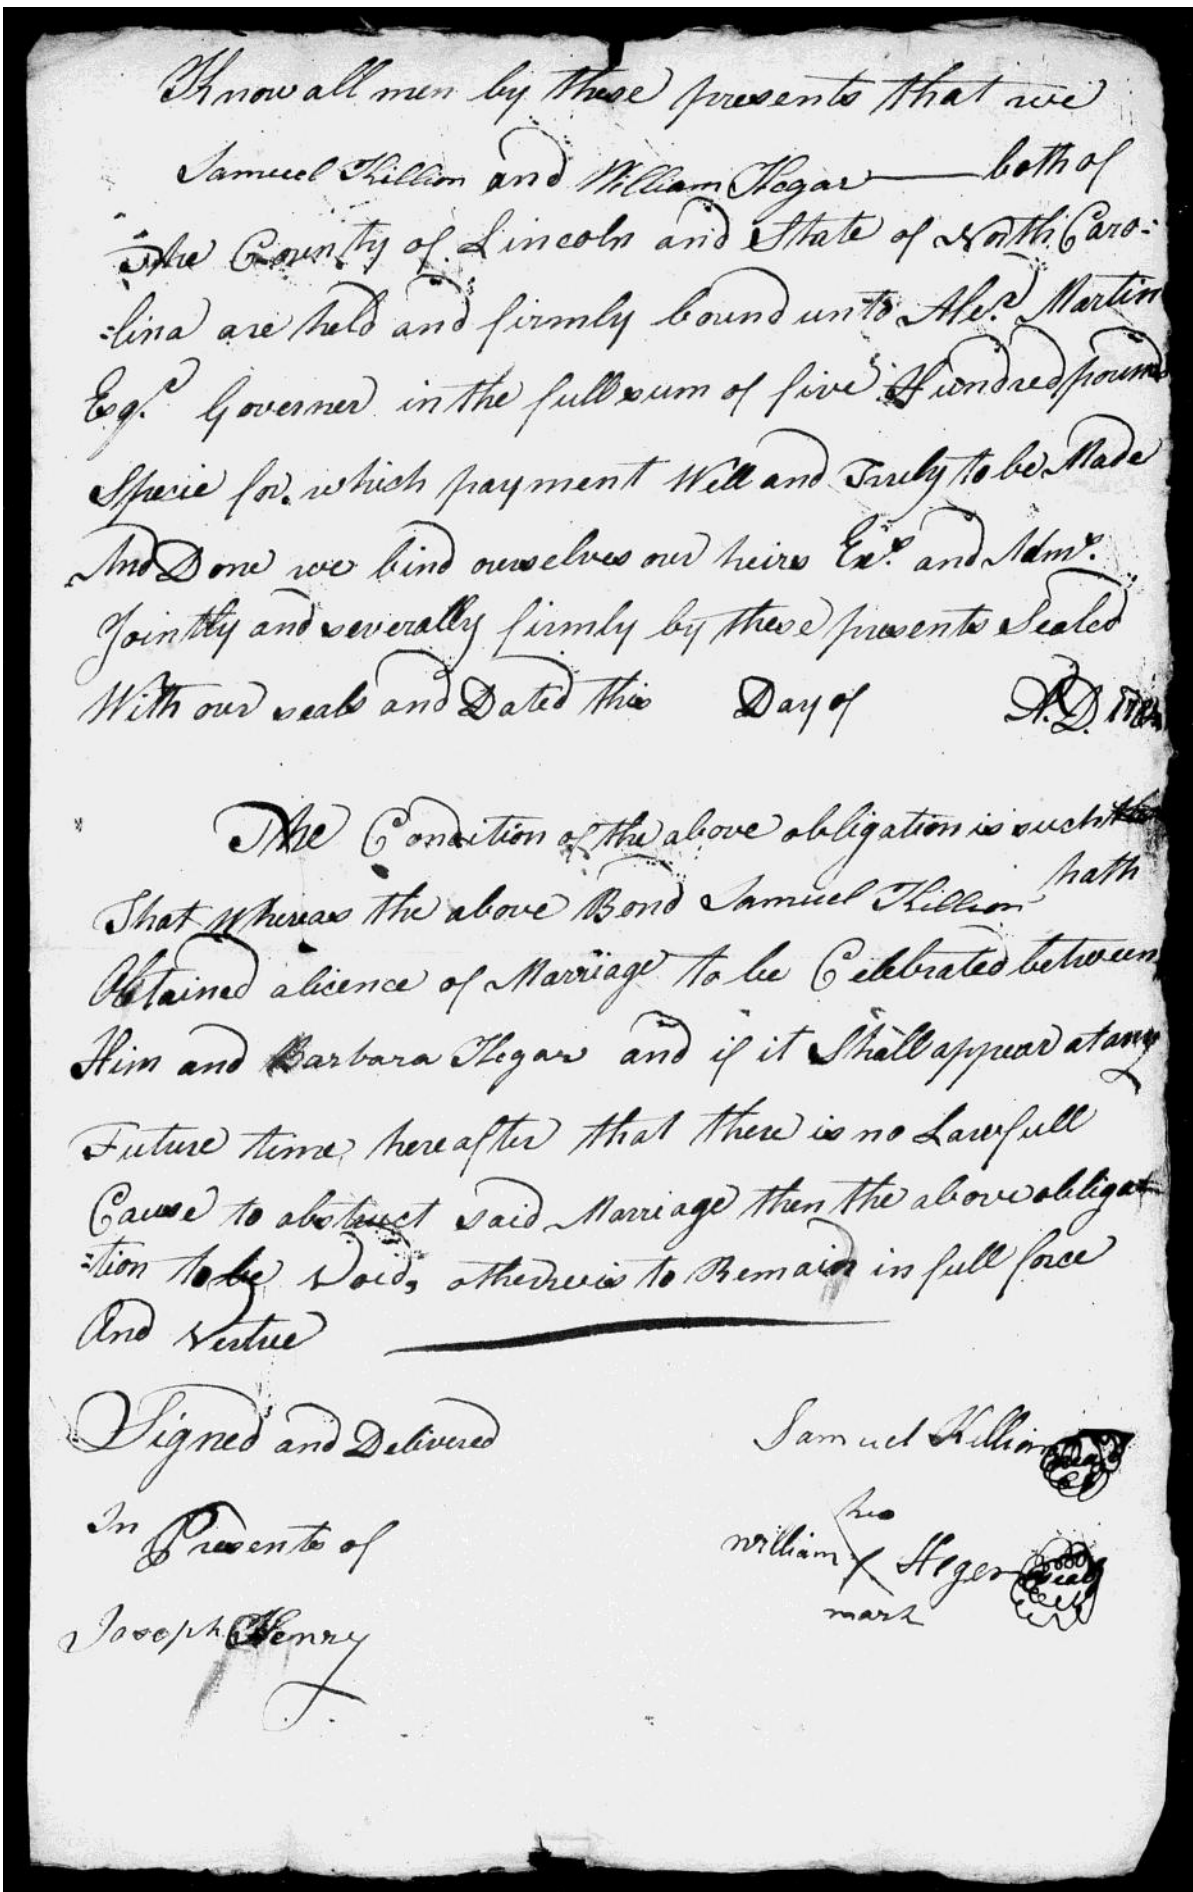 Know all men by these presents that we
Samuel Killion and William Hegar — both of
The County of Lincoln and State of North Caro=
=lina are held and firmly bound unto Alex.r Martin
Esq.r Governer in the full sum of five Hundred pounds
Specie for which payment Well and Truly to be Made
And Done we bind ourselves our heirs Ex.s and Adm.s
Jointly and severally firmly by these presents Sealed
With our seals and Dated this Day of A.D.
The Condition of the above obligation is such
That Whereas the above Bond Samuel Killion hath
Obtained alicence of Marriage to be Celebrated between
Him and Barbara Hegar and if it Shall appear at any
Future time hereafter that there is no Lawfull
Cause to abstruct said Marriage then the above obliga
=tion to be Void, otherwis to Remain in full force
And Vertue
Signed and Delivered
In Presents of
Joseph Henry
Samuel Killian Seal
his
William X Heger Seal
mark